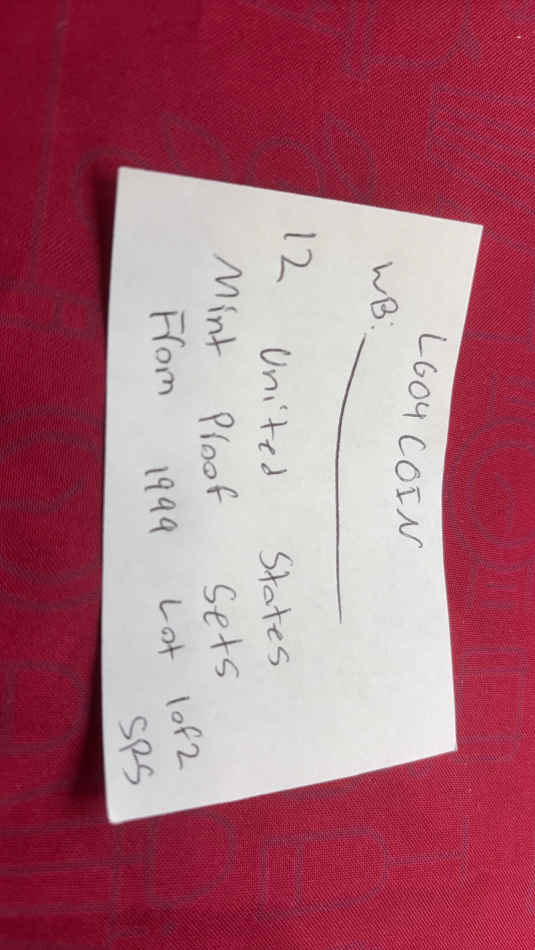 LG04COIN
WB:
12 United States
Mint Proof Sets
From 1999 Lot 1of2
SRS